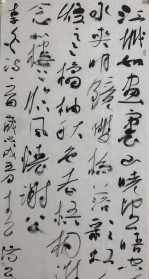 江城如畫裏山曉望晴空兩
水夾明鏡雙橋落彩虹人
煙寒橘柚秋色老梧桐誰
念北樓上臨風懷謝公
李白詩一首戊戌